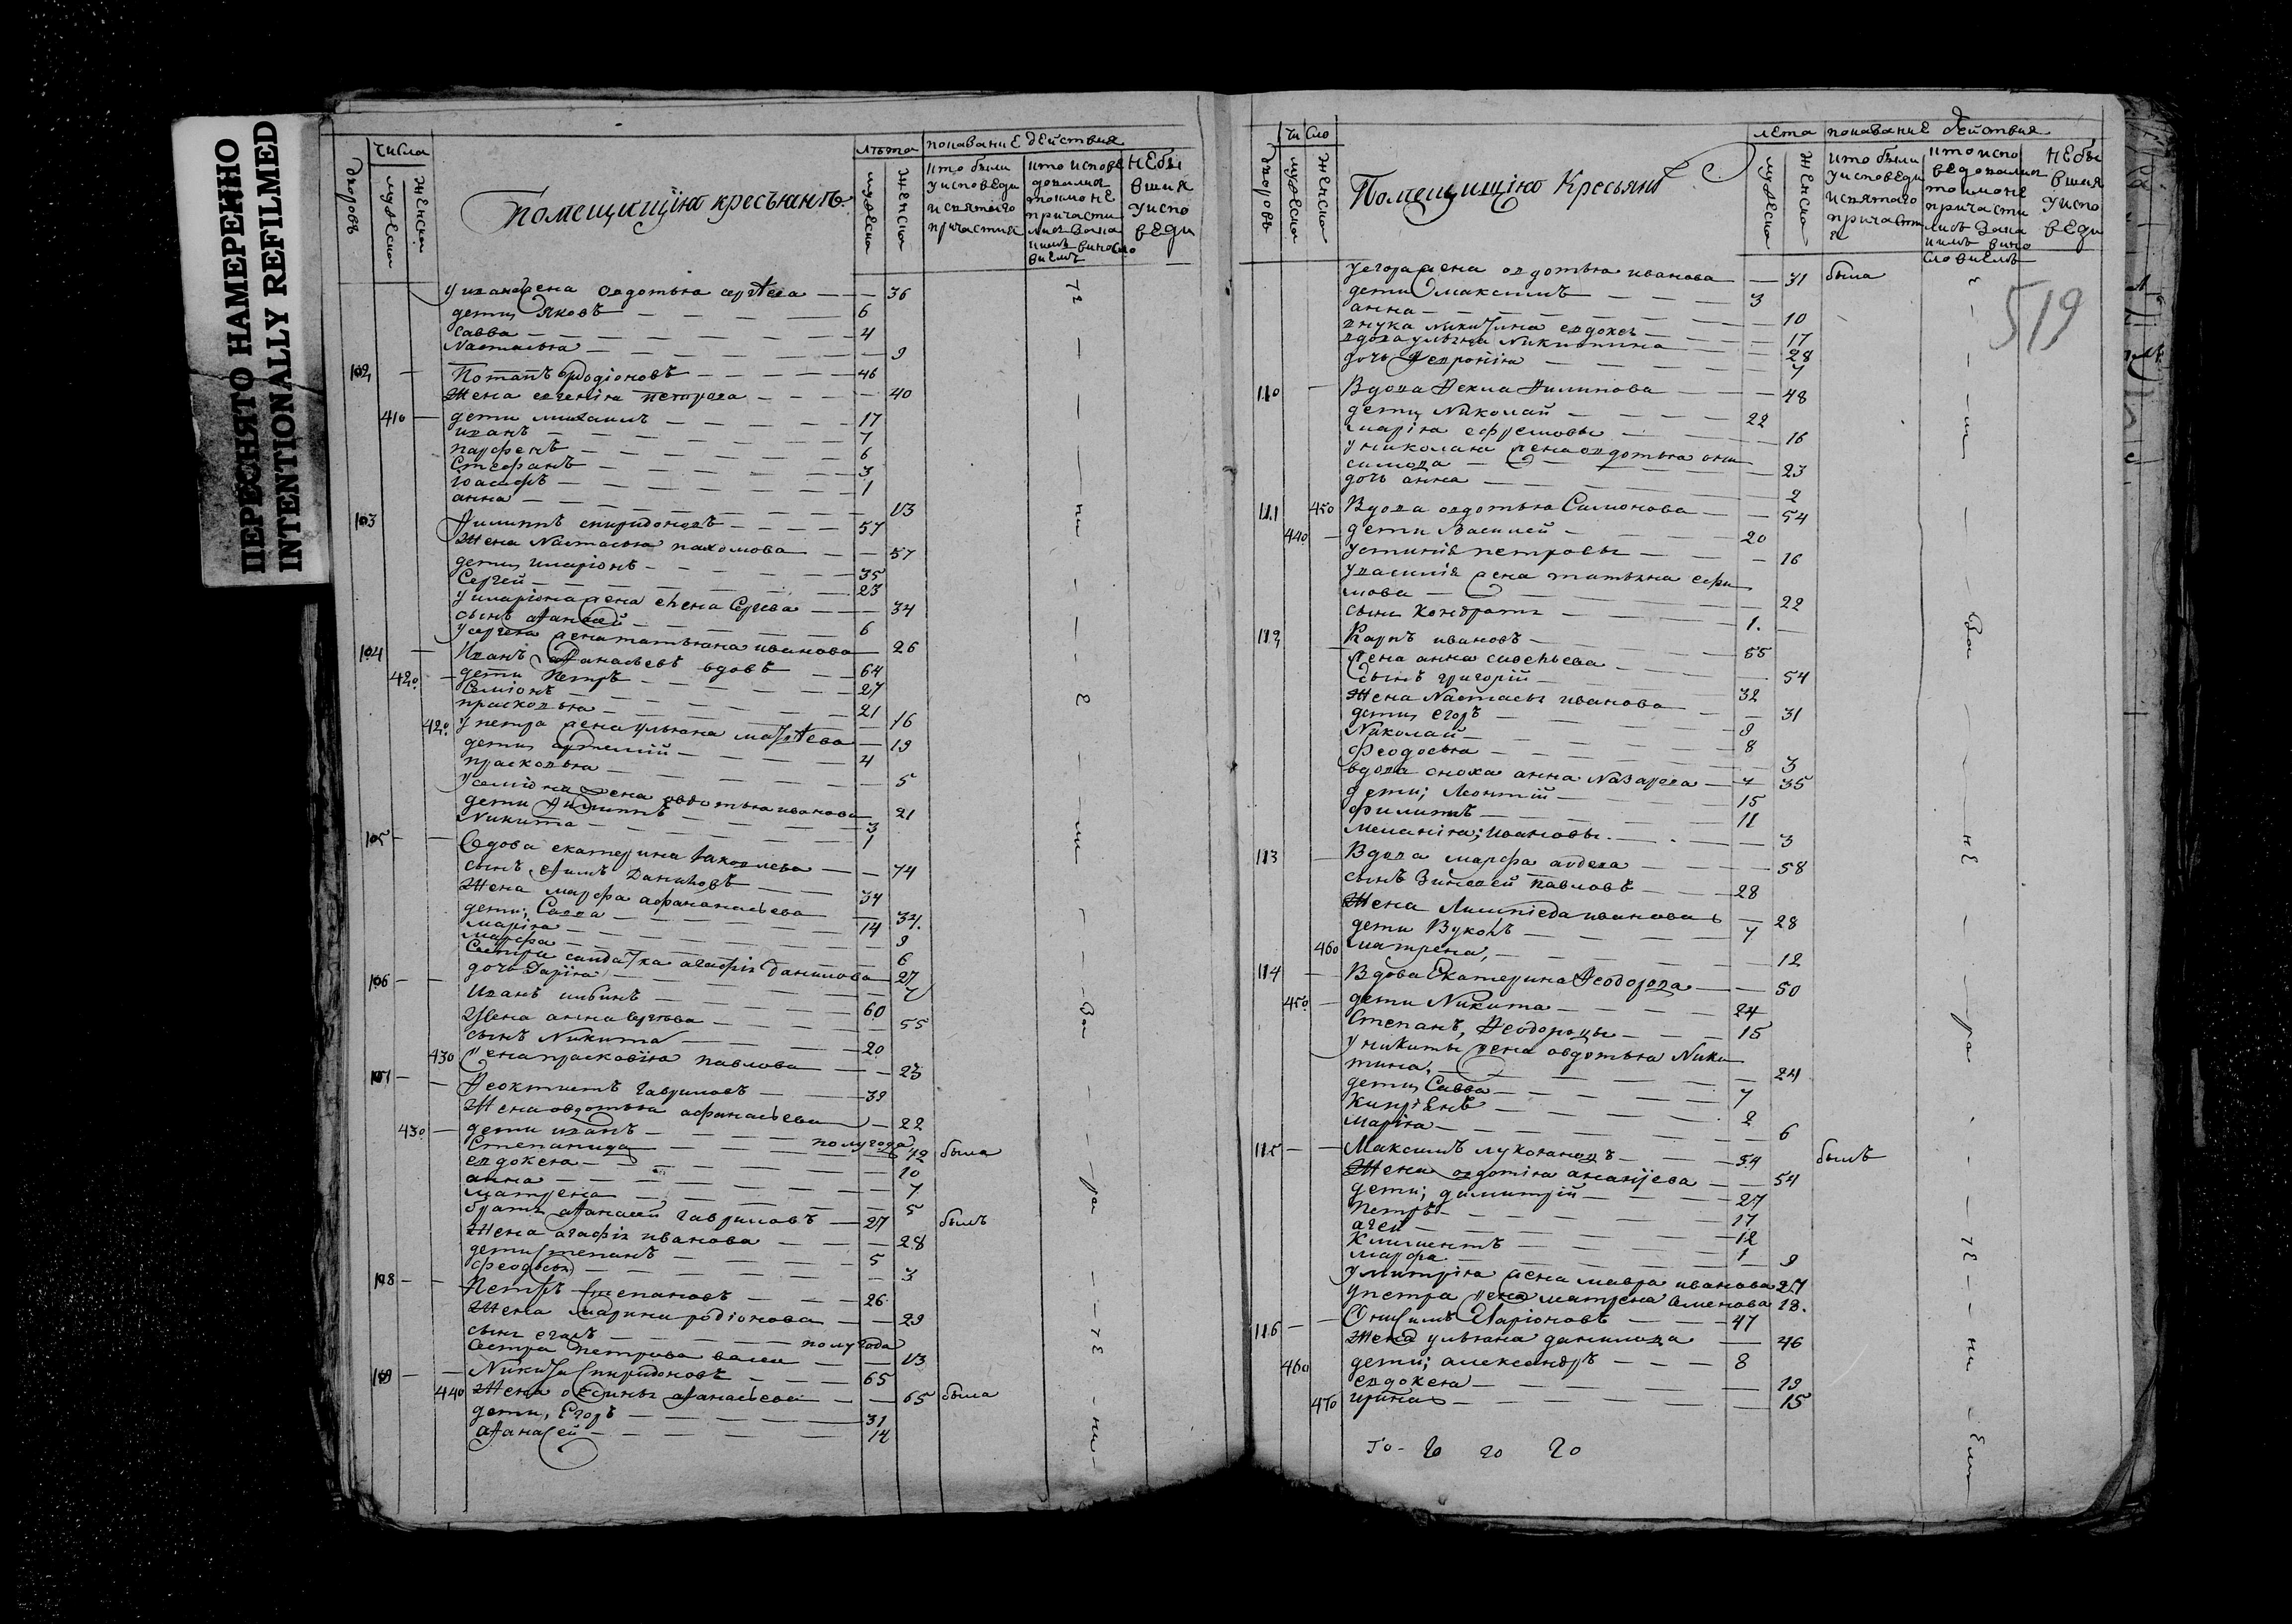 ПЕРЕСНЯТО НАМЕРЕННО
INTENTIONALLY REFILMED
числа
лѣта показание действия
дворовъ
мужеска
женска
Помещищiя кресьянѣ
мужеска
женска
кто были у исповеди и святаго причастия
кто исповедовался токмо не причастился за каким винословием
не бывших у исповеди
у ивана жена овдотья сергѣева — 36
дети яковъ — 6
савва — 4
Настасья — 9
102 Потапъ Родiоновъ — 46
Жена евгенiя петрова — 40
410 дети михаилъ — 17
иванъ — 7
парфенъ — 6
Стефанъ — 3
анна — 13
103 Филиппъ спиридоновъ — 57
Жена Настасья пахомова — 57
дети иларiонъ — 35
Сергей — 23
у иларiона жена елена Сергева — 34
сынъ афанасей — 6
у сергея жена татьяна иванова 26
104 Иванъ афанасьевъ вдовъ — 64
420 дети Петръ — 27
Семiонъ — 21
прасковья — 16
420 у петра жена ульяна матфѣева — 19
дети артемiй — 4
прасковья — 5
у семiона жена овдотья иванова 21
дети филиппъ — 3
Никита — 1
105 Вдова екатерина яковлева — 74
сынъ ефимъ Даниловъ — 34
Жена марфа афанасьева — 34
дети; Савва — 14
марiя — 9
марфа — 6
Сестра салдатка агафiя данилова — 27
дочь Дарiя —
106 Иванъ — 60
Жена анна сергѣева — 55
сынъ Никита — 20
430 жена прасковiя павлова — 23
107 Феоктистъ гавриловъ — 39
Жена овдотья афанасьева — 22
430 дети иванъ — полугода
Степанида — 12 была
евдокея — 10
анна — 7
матрена — 5
братъ афанасей гавриловъ — 27 былъ
Жена агафiя иванова — 28
дети степанъ — 5
феодосья — 3
108 Петръ степановъ — 26
Жена марина родiонова — 29
сынъ — полугода
Сестра петрова — 13
109 Никита Спиридоновъ — 65
440 Жена афанасьева — 65 была
дети, Егоръ — 31
афанасей — 14
число
лета показание действия
дворовъ
мужеска
женска
Помещищiя Кресьяня
мужеска
женска
кто были у исповеди и святаго причастия
кто исповедовался токмо не причастился за каким винословием
не бывших у исповеди
519
у егора жена овдотья иванова — 31 была
дети максимъ — 3
анна — 10
внука никитина евдокея — 17
вдова ульяна Никитина — 28
дочь феврониiя — 7
110 Вдова Фекла Филипова — 48
дети Николай — 22
марiя ефремовы — 16
у николая жена овдотья они
симова — 23
дочь анна — 2
111 450 Вдова овдотья Самонова — 54
440 дети Василей — 20
устинiя петровы — 16
у василiя жена татьяна ефи
мова — 22
сынъ Кондратъ — 1
112 Карпъ ивановъ — 55
жена анна савельева — 54
сынъ григорiй — 32
Жена Настасья иванова — 31
дети егоръ — 9
Николай — 8
феодосья — 3
вдова сноха анна Назарова — 35
дети; Леонтiй — 15
филиппъ — 11
меланiя; ивановы. — 3
113 Вдова марфа авдева — 58
сынъ Зиновей павловъ — 28
Жена иванова — 28
дети Вуколъ — 7
460 матрена, — 12
114 Вдова Екатерина Феодорова — 50
450 дети Никита — 24
Степанъ, Феодоровы — 15
у никиты жена овдотья Ники
тина, — 24
дети Савва — 7
Кипрiянъ — 2
марiя — 6
115 Максимъ лукояновъ — 54 былъ
Жена овдотiя ананiева — 54
дети; димитрiй — 27
Петръ — 17
агей — 12
Климентъ — 1
марфа — 9
у митрiя жена мавра иванова 27
у петра жена матрена Семенова 18.
116 Онисимъ Иларiоновъ — 47
Жена ульяна данилова — 46
460 дети; александръ — 8
евдокея — 19
470 ирина — 15